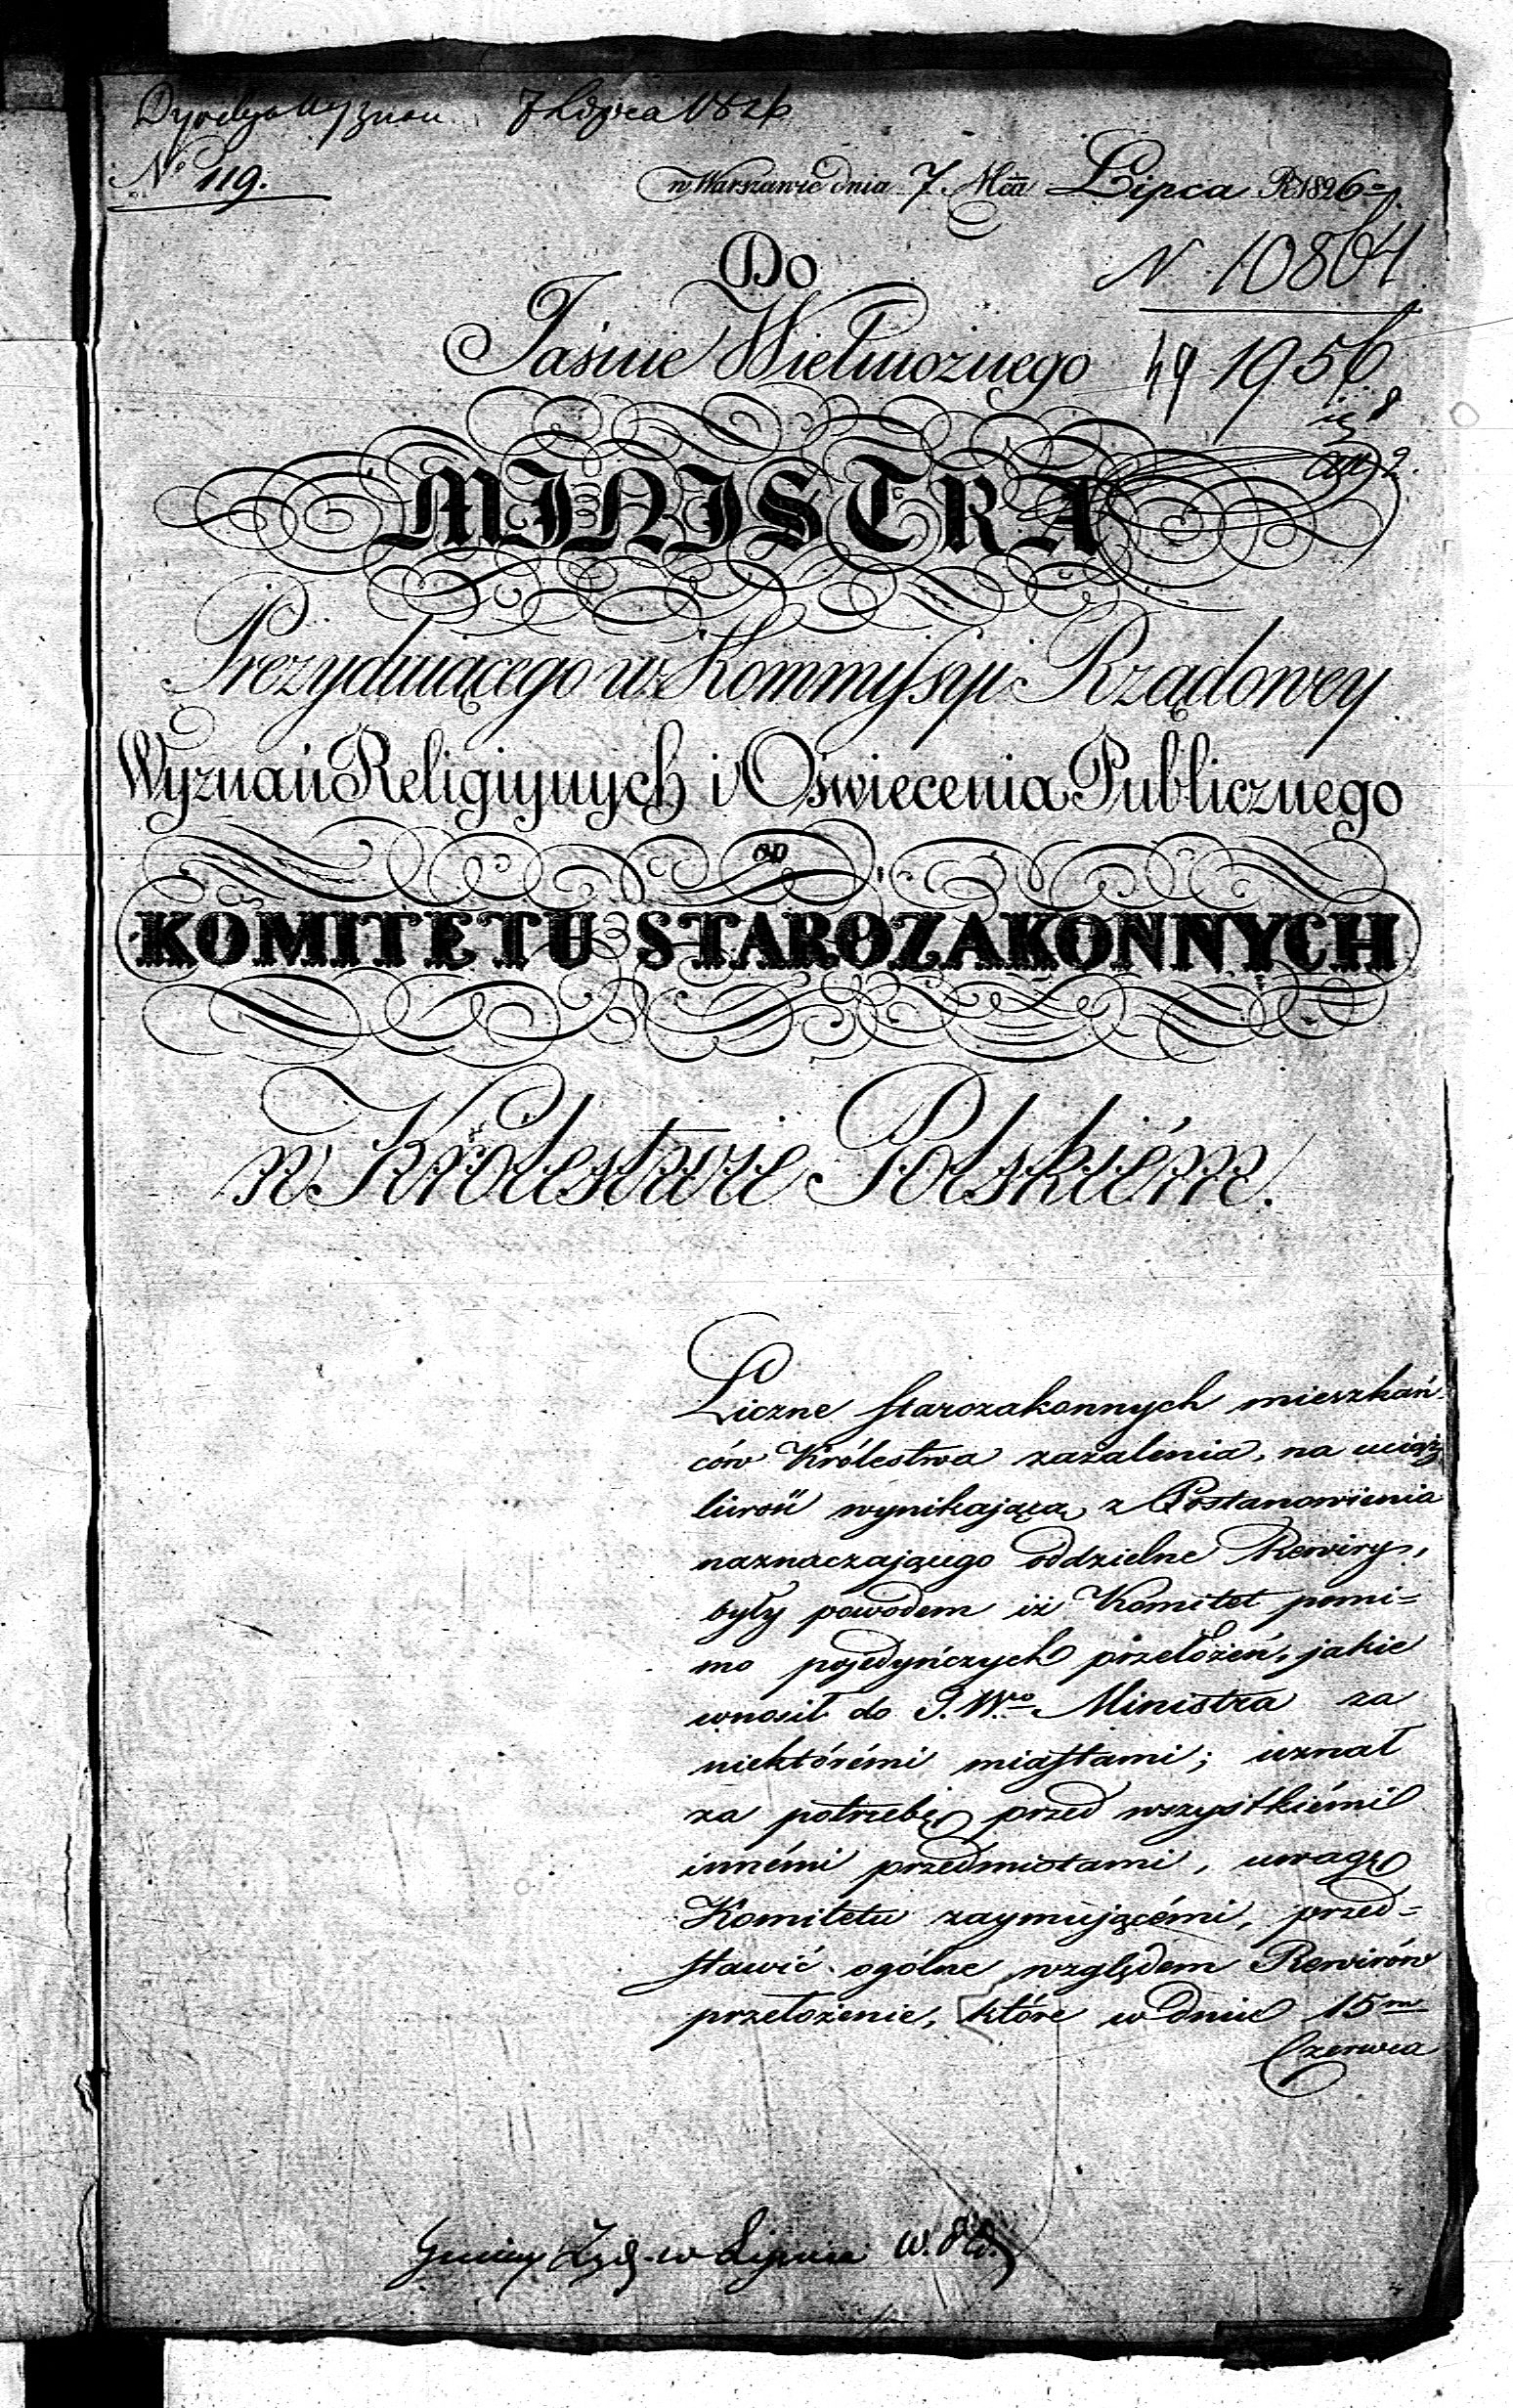 7 Lipca 1826
No 119.
w Warszawie dnia 7. Mca Lipca R. 1826
N 10864
Do
Jaśnie Wielmożnego
19 1956
MINISTRA
Prezyduiącego w Kommyssyi Rządowey
Wyznań Religiynych i Oświecenia Publicznego
OD
KOMITETU STAROZAKONNYCH
w Królestwie Polskiém.
Liczne starozakonnych mieszkań-
ców Królestwa zażalenia, na uciąż
liwość wynikającą z Postanowienia
naznaczającego oddzielne Rewiry,
były powodem iż Komitet pomi=
mo pojedyńczych przełożeń, jakie
wnosił do J. Wgo Ministra za
niektórémi miastami; uznał
za potrzebę przed wszystkiémi
innémi przedmiotami, uwagę
Komitetu zaymującémi, przed=
stawić ogólne względem Rewirów
przełożenie, które w dniu 15m
Czerwca
Gminy Żyd. w Lipnie